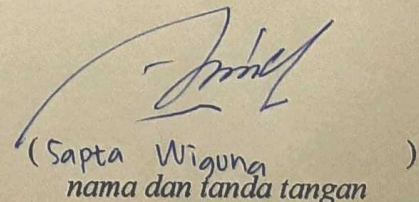 (Sapta Wiguna)
nama dan tanda tangan